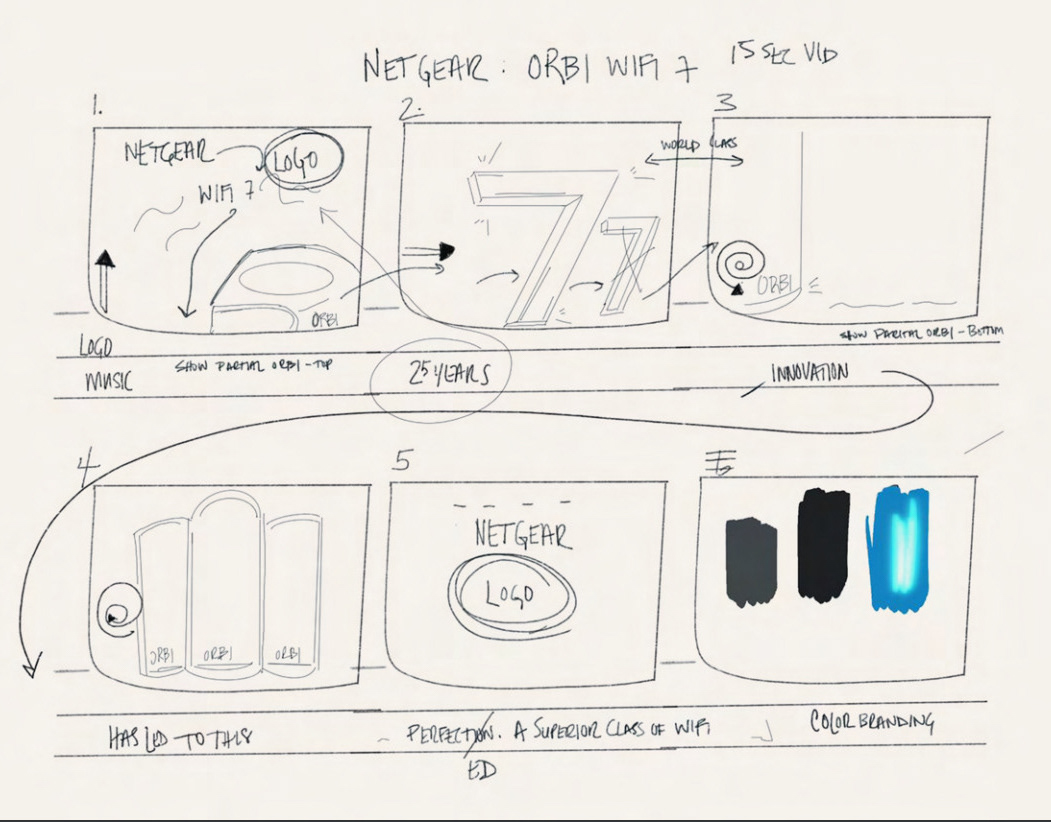 NETGEAR : ORBI WIFI 7 15 SEC VID
1.
2.
3
NETGEAR
LOGO
WIFI 7
ORBI
7
7
WORLD CLASS
ORBI
SHOW PARITAL ORBI - BOTTOM
LOGO
MUSIC
SHOW PARTIAL ORBI - TOP
25 YEARS
INNOVATION
4
5
ORBI
ORBI
ORBI
NETGEAR
LOGO
HAS LED TO THIS
PERFECTION. A SUPERIOR CLASS OF WIFI
ED
COLOR BRANDING